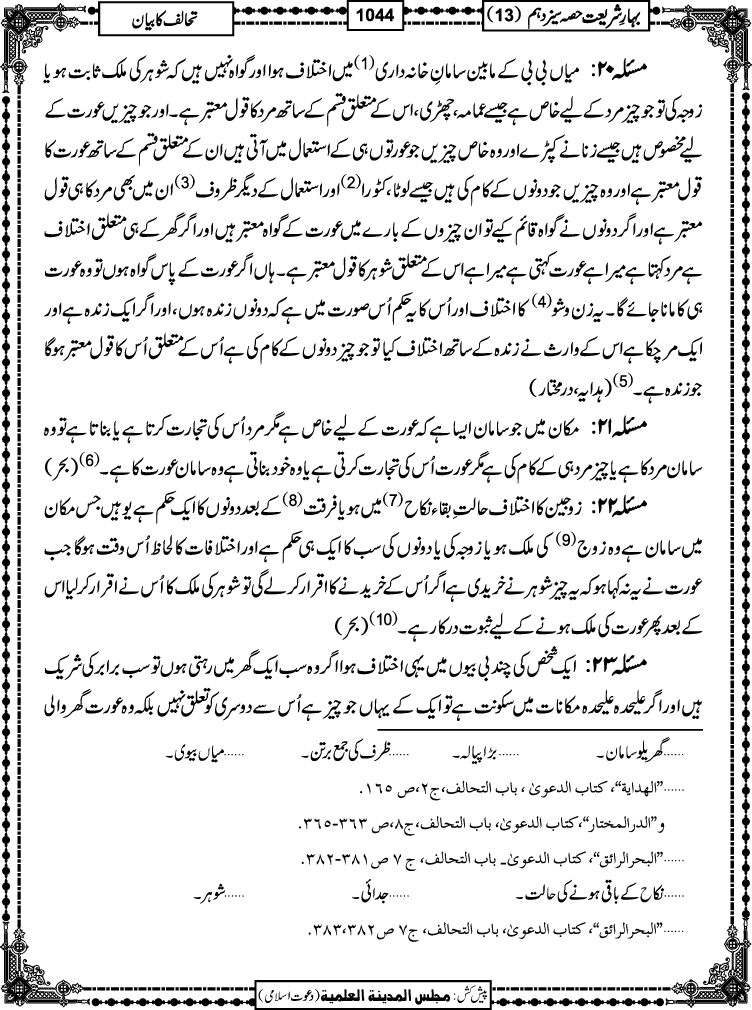 بہارِ شریعت حصہ سیزدہم (13)
1044
تحالف کا بیان
مسئلہ ۲۰: میاں بی بی کے مابین سامانِ خانہ داری (1) میں اختلاف ہوا اور گواہ نہیں ہیں کہ شوہر کی ملک ثابت ہو یا
زوجہ کی تو جو چیز مرد کے لیے خاص ہے جیسے عمامہ، چھڑی، اس کے متعلق قسم کے ساتھ مرد کا قول معتبر ہے۔ اور جو چیزیں عورت کے
لیے مخصوص ہیں جیسے زنانے کپڑے اور وہ خاص چیزیں جو عورتوں ہی کے استعمال میں آتی ہیں ان کے متعلق قسم کے ساتھ عورت کا
قول معتبر ہے اور وہ چیزیں جو دونوں کے کام کی ہیں جیسے لوٹا، کٹورا (2) اور استعمال کے دیگر ظروف (3) ان میں بھی مرد کا ہی قول
معتبر ہے اور اگر دونوں نے گواہ قائم کیے تو ان چیزوں کے بارے میں عورت کے گواہ معتبر ہیں اور اگر گھر کے ہی متعلق اختلاف
ہے مرد کہتا ہے میرا ہے عورت کہتی ہے میرا ہے اس کے متعلق شوہر کا قول معتبر ہے۔ ہاں اگر عورت کے پاس گواہ ہوں تو وہ عورت
ہی کا مانا جائے گا۔ یہ زن و شو (4) کا اختلاف اور اُس کا یہ حکم اُس صورت میں ہے کہ دونوں زندہ ہوں، اور اگر ایک زندہ ہے اور
ایک مر چکا ہے اس کے وارث نے زندہ کے ساتھ اختلاف کیا تو جو چیز دونوں کے کام کی ہے اُس کے متعلق اُس کا قول معتبر ہوگا
جو زندہ ہے۔ (5) (ہدایہ، درمختار)
مسئلہ ۲۱: مکان میں جو سامان ایسا ہے کہ عورت کے لیے خاص ہے مگر مرد اُس کی تجارت کرتا ہے یا بناتا ہے تو وہ
سامان مرد کا ہے یا چیز مرد ہی کے کام کی ہے مگر عورت اُس کی تجارت کرتی ہے یا وہ خود بناتی ہے وہ سامان عورت کا ہے۔ (6) (بحر)
مسئلہ ۲۲: زوجین کا اختلاف حالتِ بقاءِ نکاح (7) میں ہو یا فرقت (8) کے بعد دونوں کا ایک حکم ہے یوہیں جس مکان
میں سامان ہے وہ زوج (9) کی ملک ہو یا زوجہ کی یا دونوں کی سب کا ایک ہی حکم ہے اور اختلافات کا لحاظ اُس وقت ہوگا جب
عورت نے یہ نہ کہا ہو کہ یہ چیز شوہر نے خریدی ہے اگر اُس کے خریدنے کا اقرار کر لے گی تو شوہر کی ملک کا اُس نے اقرار کر لیا اس
کے بعد پھر عورت کی ملک ہونے کے لیے ثبوت درکار ہے۔ (10) (بحر)
مسئلہ ۲۳: ایک شخص کی چند بی بیوں میں یہی اختلاف ہوا اگر وہ سب ایک گھر میں رہتی ہوں تو سب برابر کی شریک
ہیں اور اگر علیحدہ علیحدہ مکانات میں سکونت ہے تو ایک کے یہاں جو چیز ہے اُس سے دوسری کو تعلق نہیں بلکہ وہ عورت گھر والی
......گھریلو سامان۔ ......بڑا پیالہ۔ ......ظرف کی جمع برتن۔ ......میاں بیوی۔
......"الهداية"، کتاب الدعویٰ ، باب التحالف،ج۲،ص ۱٦٥.
و"الدرالمختار"،کتاب الدعویٰ، باب التحالف،ج۸،ص ۳٦۳-۳٦٥.
......"البحرالرائق"، کتاب الدعویٰ۔ باب التحالف، ج ۷ ص ۳۸۱-۳۸۲.
......نکاح کے باقی ہونے کی حالت۔ ......جدائی۔ ......شوہر۔
......"البحرالرائق"، کتاب الدعویٰ، باب التحالف، ج۷ ص ۳۸۲،۳۸۳.
پیش کش: مجلس المدينة العلمية (دعوت اسلامی)